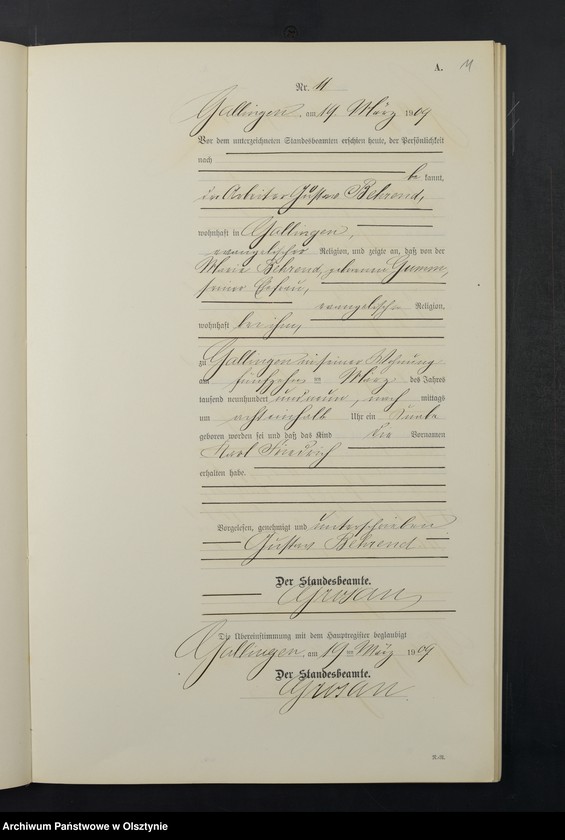 A. 11
Nr. 11
Gallingen, am 19 März 1909
Vor dem unterzeichneten Standesbeamten erschien heute, der Persönlichkeit
nach
be kannt,
der Arbeiter Gustav Behrend,
wohnhaft in Gallingen,
evangelischer Religion, und zeigte an, daß von der
Marie Behrend, geborenen Gumm,
seiner Ehefrau,
evangelischer Religion,
wohnhaft bei ihm,
zu Gallingen in seiner Wohnung
am fünfzehn ten März des Jahres
tausend neunhundert und neun, nach mittags
um acht einhalb Uhr ein Knabe
geboren worden sei und daß das Kind die Vornamen
Karl Friedrich
erhalten habe.
Vorgelesen, genehmigt und unterschrieben
Gustav Behrend
Der Standesbeamte.
Grosan
Die Übereinstimmung mit dem Hauptregister beglaubigt
Gallingen, am 19 ten März 1909
Der Standesbeamte.
Grosan
Archiwum Państwowe w Olsztynie